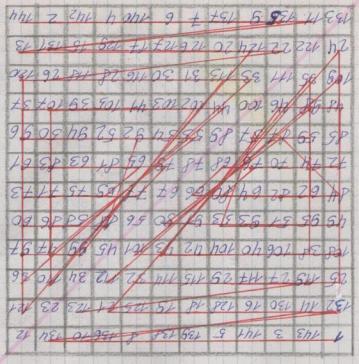 1 143 3 141 5 139 138 8 136 10 134 12
132 14 130 16 128 18 19 125 21 123 23 121
25 119 27 117 29 115 114 32 112 34 110 36
108 38 106 40 104 42 43 101 45 99 47 97
49 95 51 93 53 91 90 56 88 58 86 60
84 62 82 64 80 66 67 77 69 75 71 73
72 74 70 76 68 78 79 65 81 63 83 61
85 59 87 57 89 55 54 92 52 94 50 96
48 98 46 100 44 102 103 41 105 39 107 37
109 35 111 33 113 31 30 116 28 118 26 120
24 122 22 124 20 126 127 17 129 15 131 13
133 11 135 9 137 7 6 140 4 142 2 144